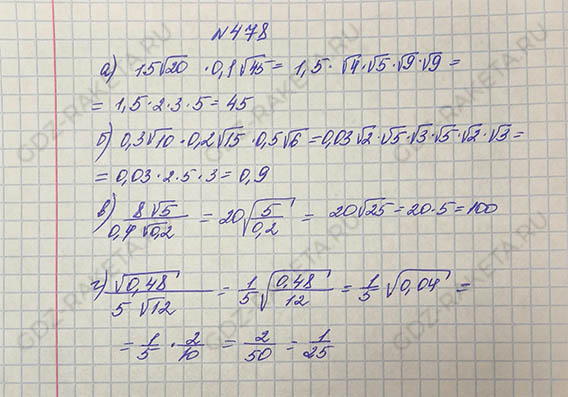 №478
а) 15√20 · 0,1√45 = 1,5 · √4 · √5 · √9 · √9 =
= 1,5 · 2 · 3 · 5 = 45
б) 0,3√10 · 0,2√15 · 0,5√6 = 0,03√2 · √5 · √3 · √5 · √2 · √3 =
= 0,03 · 2 · 5 · 3 = 0,9
в) 8√5 / 0,4√0,2 = 20√(5/0,2) = 20√25 = 20 · 5 = 100
г) √0,48 / 5√12 = 1/5 √(0,48/12) = 1/5 √0,04 =
= 1/5 · 2/10 = 2/50 = 1/25
GDZ-RAKETA.RU
GDZ-RAKETA.RU
GDZ-RAKETA.RU
GDZ-RAKETA.RU
GDZ-RAKETA.RU
GDZ-RAKETA.RU